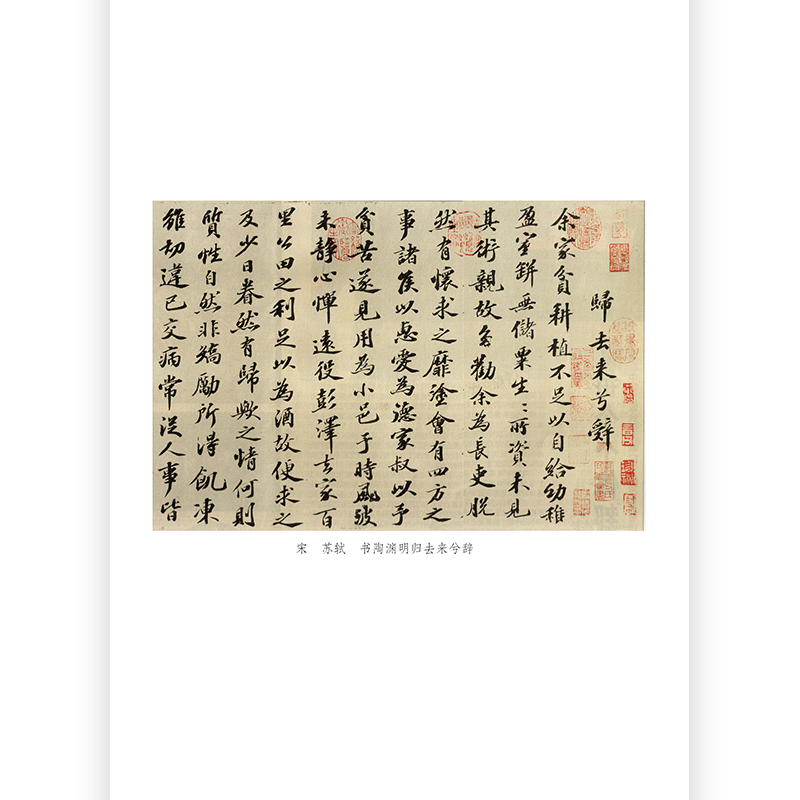 歸去来兮辭
余家貧耕植不足以自給幼稚
盈室缾無儲粟生〻所資未見
其術親故多勸余為長吏脱
然有懷求之靡塗會有四方之
事諸侯以惠愛為德家叔以予
貧苦遂見用為小邑于時風波
未靜心憚遠役彭澤去家百
里公田之利足以為酒故便求之
及少日眷然有歸歟之情何則
質性自然非矯勵所得飢凍
雖切違已交病常從人事皆
宋 苏轼 书陶渊明归去来兮辞